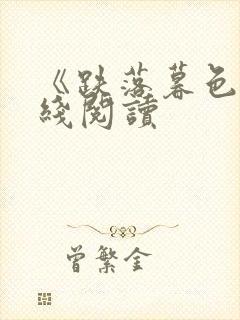 《跌落暮色
綫閱讀
曾繁金